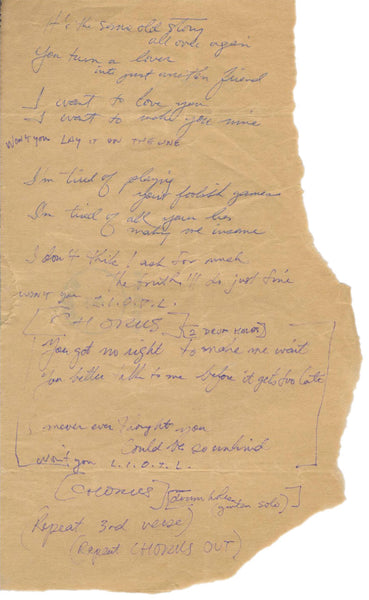 It's the same old story
all over again
You turn a lover
into just another friend
I want to love you
I want to make you mine
Won't you LAY IT ON THE LINE
I'm tired of playing
your foolish games
I'm tired of all your lies
making me insane
I don't think I ask for much
The truth'll do just fine
WON'T you L.I.O.T.L.
[CHORUS] [2 DRUM HOLES]
You got no right to make me wait
You better talk to me before it gets too late
I never ever thought you
Could be so unkind
Won't you L.I.O.T.L.
[CHORUS] [drum holes
guitar solo]
(Repeat 3rd verse)
(Repeat CHORUS OUT)